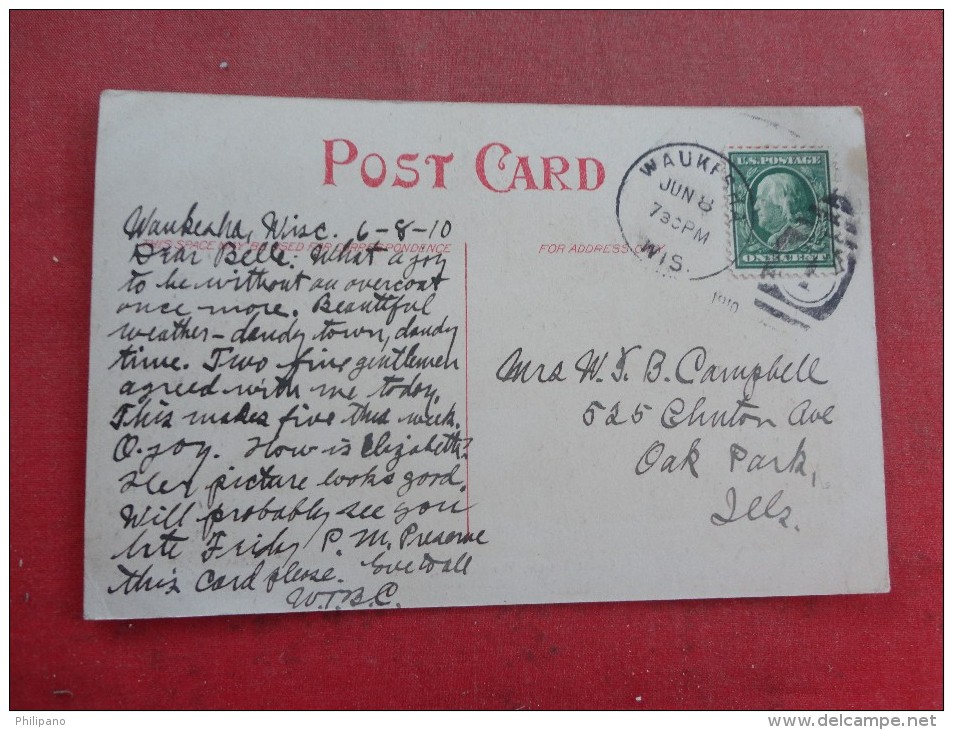 POST CARD
THIS SPACE MAY BE USED FOR CORRESPONDENCE
FOR ADDRESS ONLY.
WAUKESHA
JUN 8
730PM
WIS.
1910
U.S. POSTAGE
ONE CENT
Waukesha, Wisc. 6-8-10
Dear Belle: What a joy
to be without an overcoat
once more. Beautiful
weather - dandy town, dandy
time. Two fine gentlemen
agreed with me today.
This makes five this week.
O. joy. How is Elizabeth?
Her picture looks good.
Will probably see you
late Friday P.M. Preserve
this card please.
W.T.B.C.
Mrs W. T. B. Campbell
525 Clinton Ave
Oak Park,
Ills.
Philipano
http://www.delcampe.net